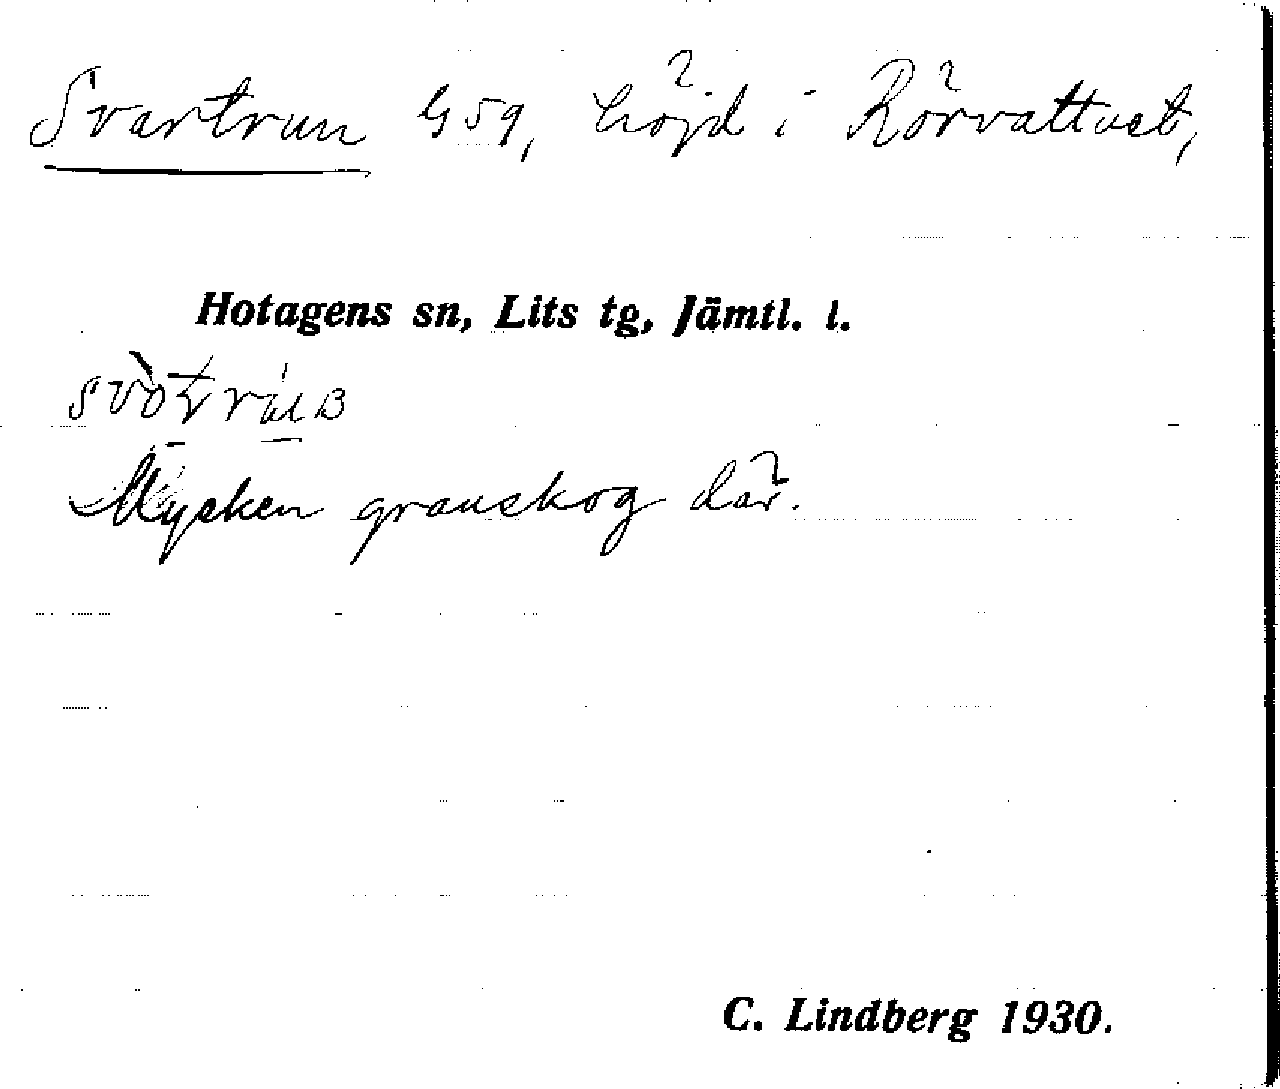 Svartrun G59, höjd i Rörvattnet,
Hotagens sn, Lits tg, Jämtl. l.
Mycken granskog där.
C. Lindberg 1930.